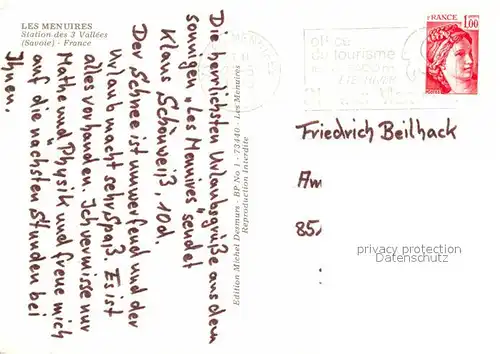 LES MENUIRES
Station des 3 Vallées
(Savoie) - France
Die herrlichsten Urlaubsgrüße aus dem
sonnigen „Les Menuires" sendet
Klaus Schönweiß, 10d.
Der Schnee ist umwerfend und der
Urlaub macht sehr Spaß. Es ist
alles vorhanden. Ich vermisse nur
Mathe und Physik und freue mich
auf die nächsten Stunden bei
Ihnen.
Edition Michel Desmurs - BP No 1 - 73440 - Les Menuires
Reproduction Interdite
office
du tourisme
FRANCE
1,00
Friedrich Beilhack
Am
85
privacy protection
Datenschutz